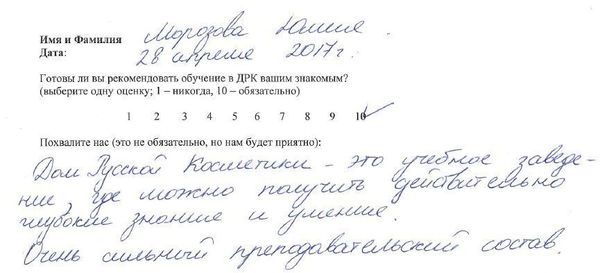 Имя и Фамилия Морозова Юлия.
Дата: 28 апреля 2017г.
Готовы ли вы рекомендовать обучение в ДРК вашим знакомым?
(выберите одну оценку; 1 – никогда, 10 – обязательно)
1 2 3 4 5 6 7 8 9 10
Похвалите нас (это не обязательно, но нам будет приятно):
Дом Русской Косметики - это учебное заведе-
ние, где можно получить действительно
глубокие знание и умение.
Очень сильный преподавательский состав.